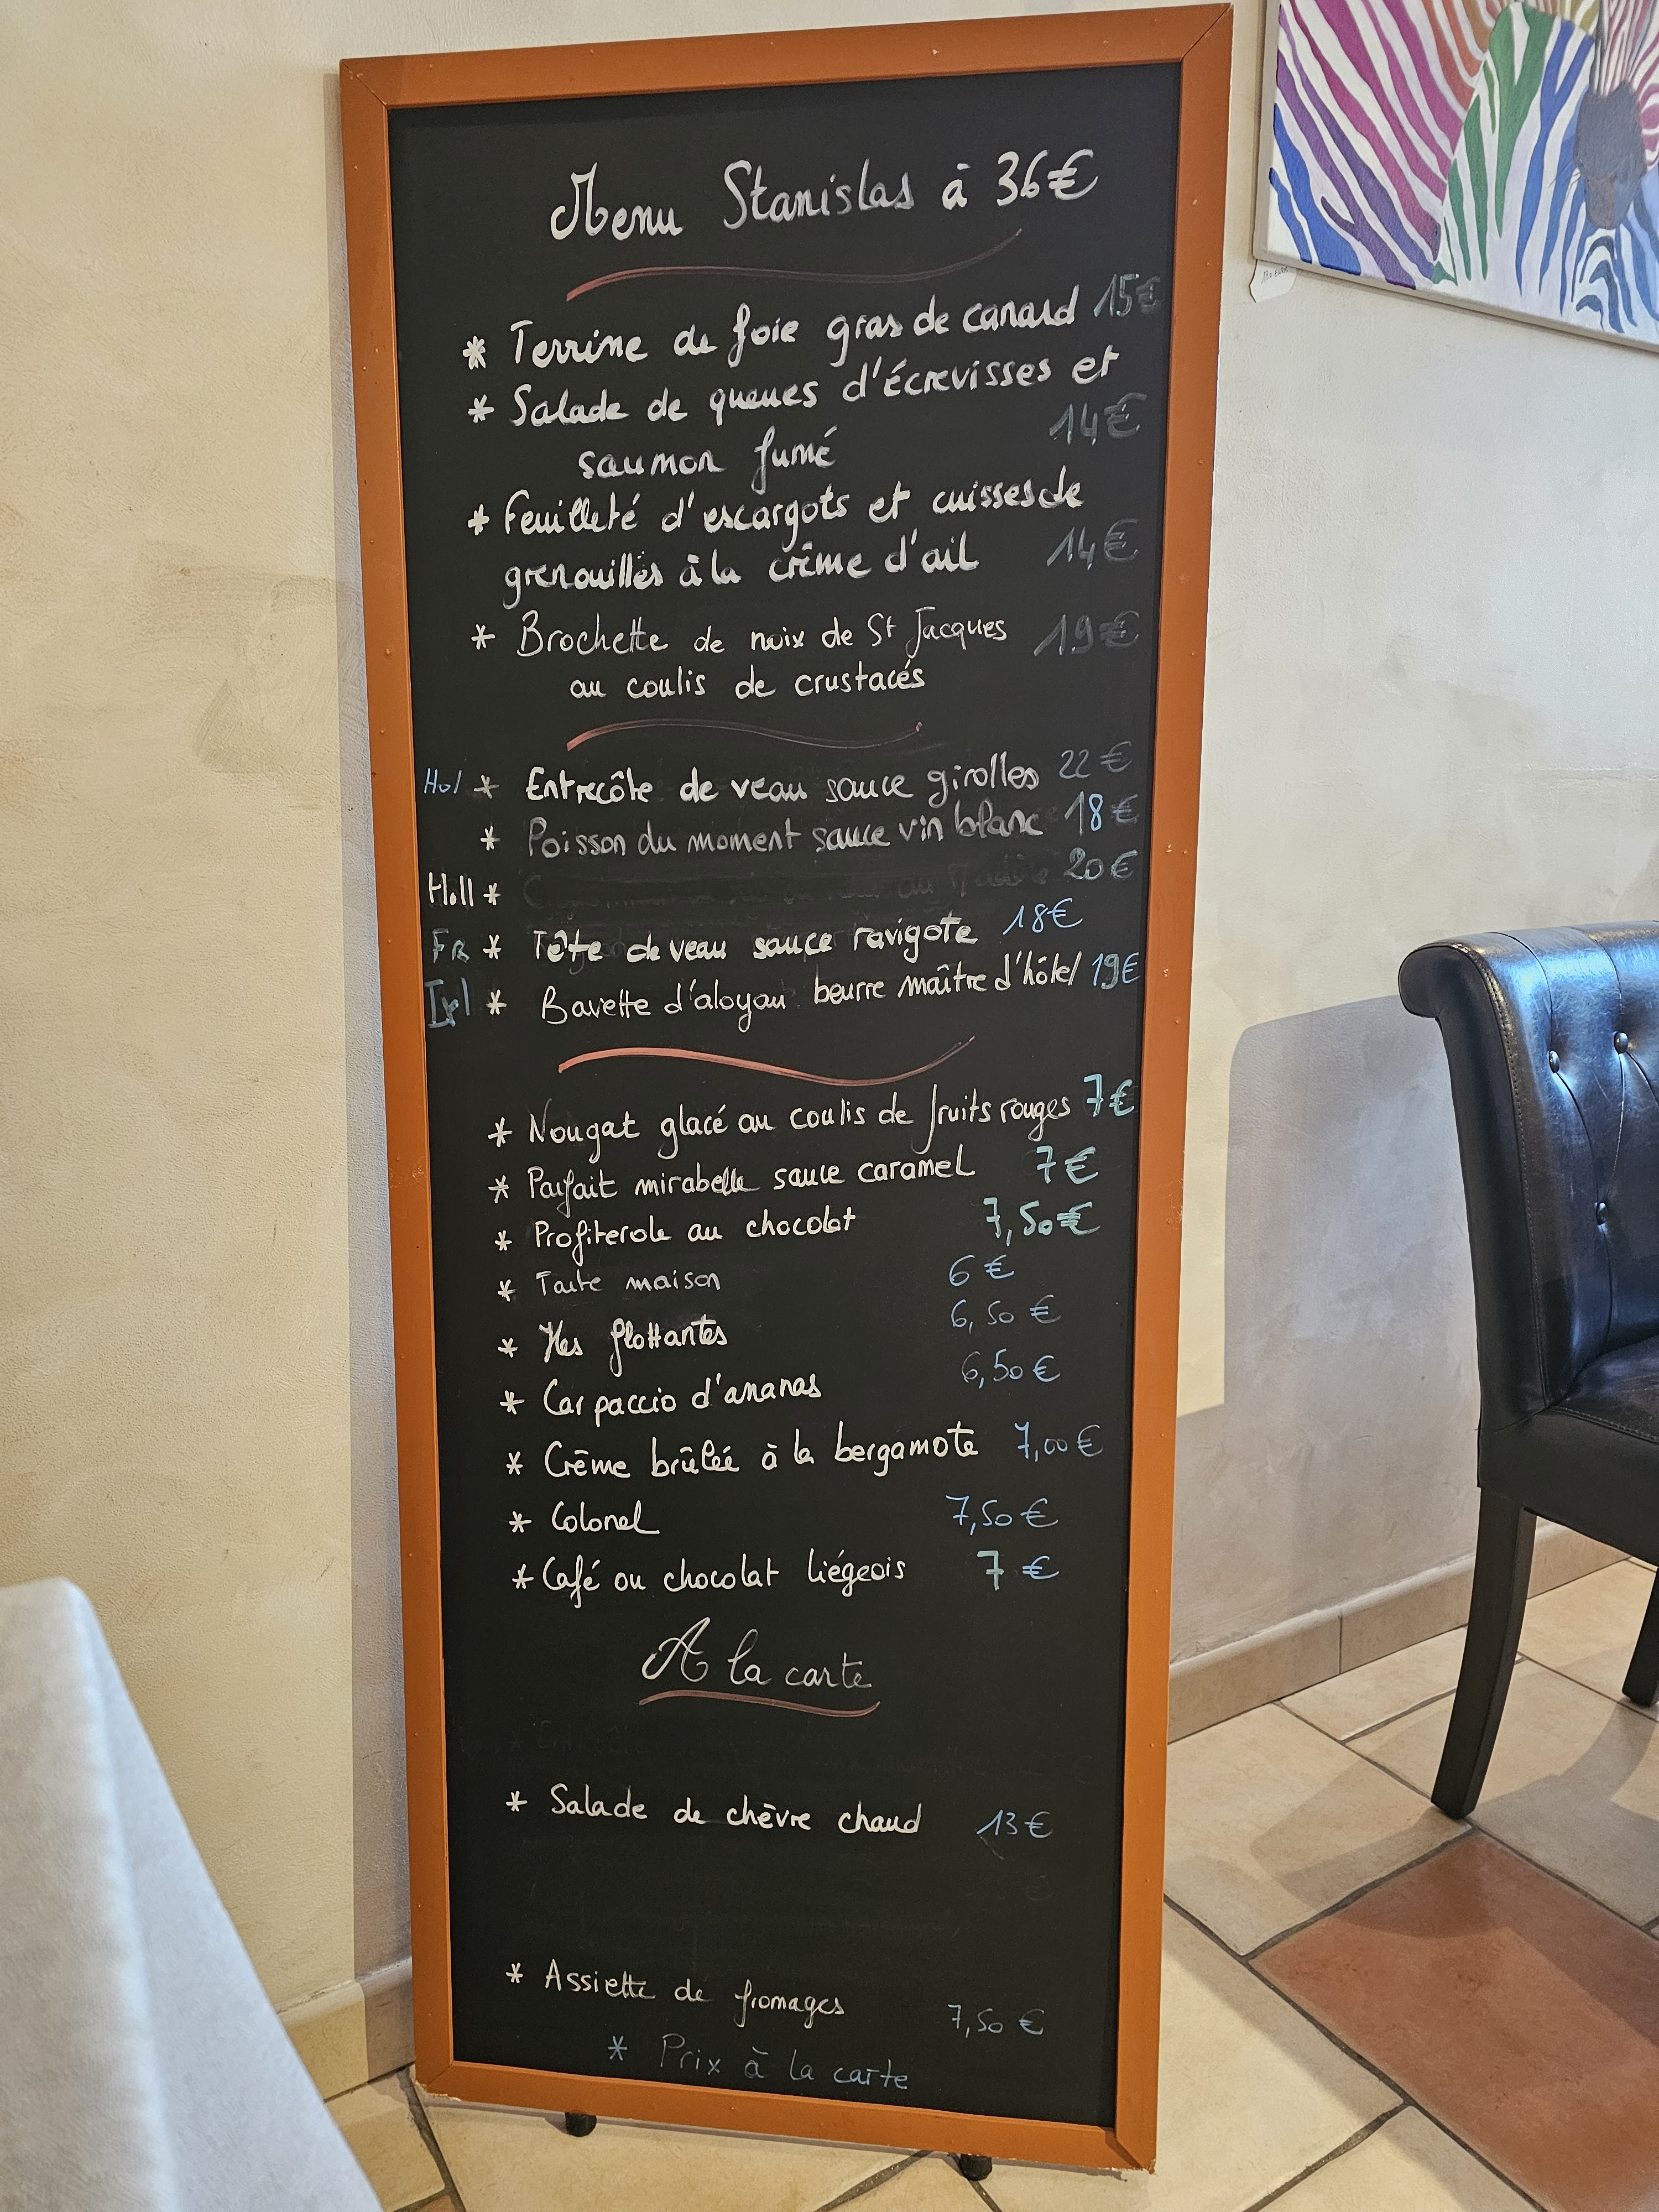 Menu Stanislas à 36€
* Terrine de foie gras de canard 15€
* Salade de queues d'écrevisses et
saumon fumé 14€
* Feuilleté d'escargots et cuisses de
grenouilles à la crème d'ail 14€
* Brochette de noix de St Jacques 19€
au coulis de crustacés
Hol * Entrecôte de veau sauce girolles 22€
* Poisson du moment sauce vin blanc 18€
Holl * 20€
FR * Tête de veau sauce ravigote 18€
Irl * Bavette d'aloyau beurre maître d'hôtel 19€
* Nougat glacé au coulis de fruits rouges 7€
* Parfait mirabelle sauce caramel 7€
* Profiterole au chocolat 7,50€
* Tarte maison 6€
* Iles flottantes 6,50€
* Carpaccio d'ananas 6,50€
* Crème brûlée à la bergamote 7,00€
* Colonel 7,50€
* Café ou chocolat liégeois 7€
A la carte
* Salade de chèvre chaud 13€
* Assiette de fromages 7,50€
* Prix à la carte